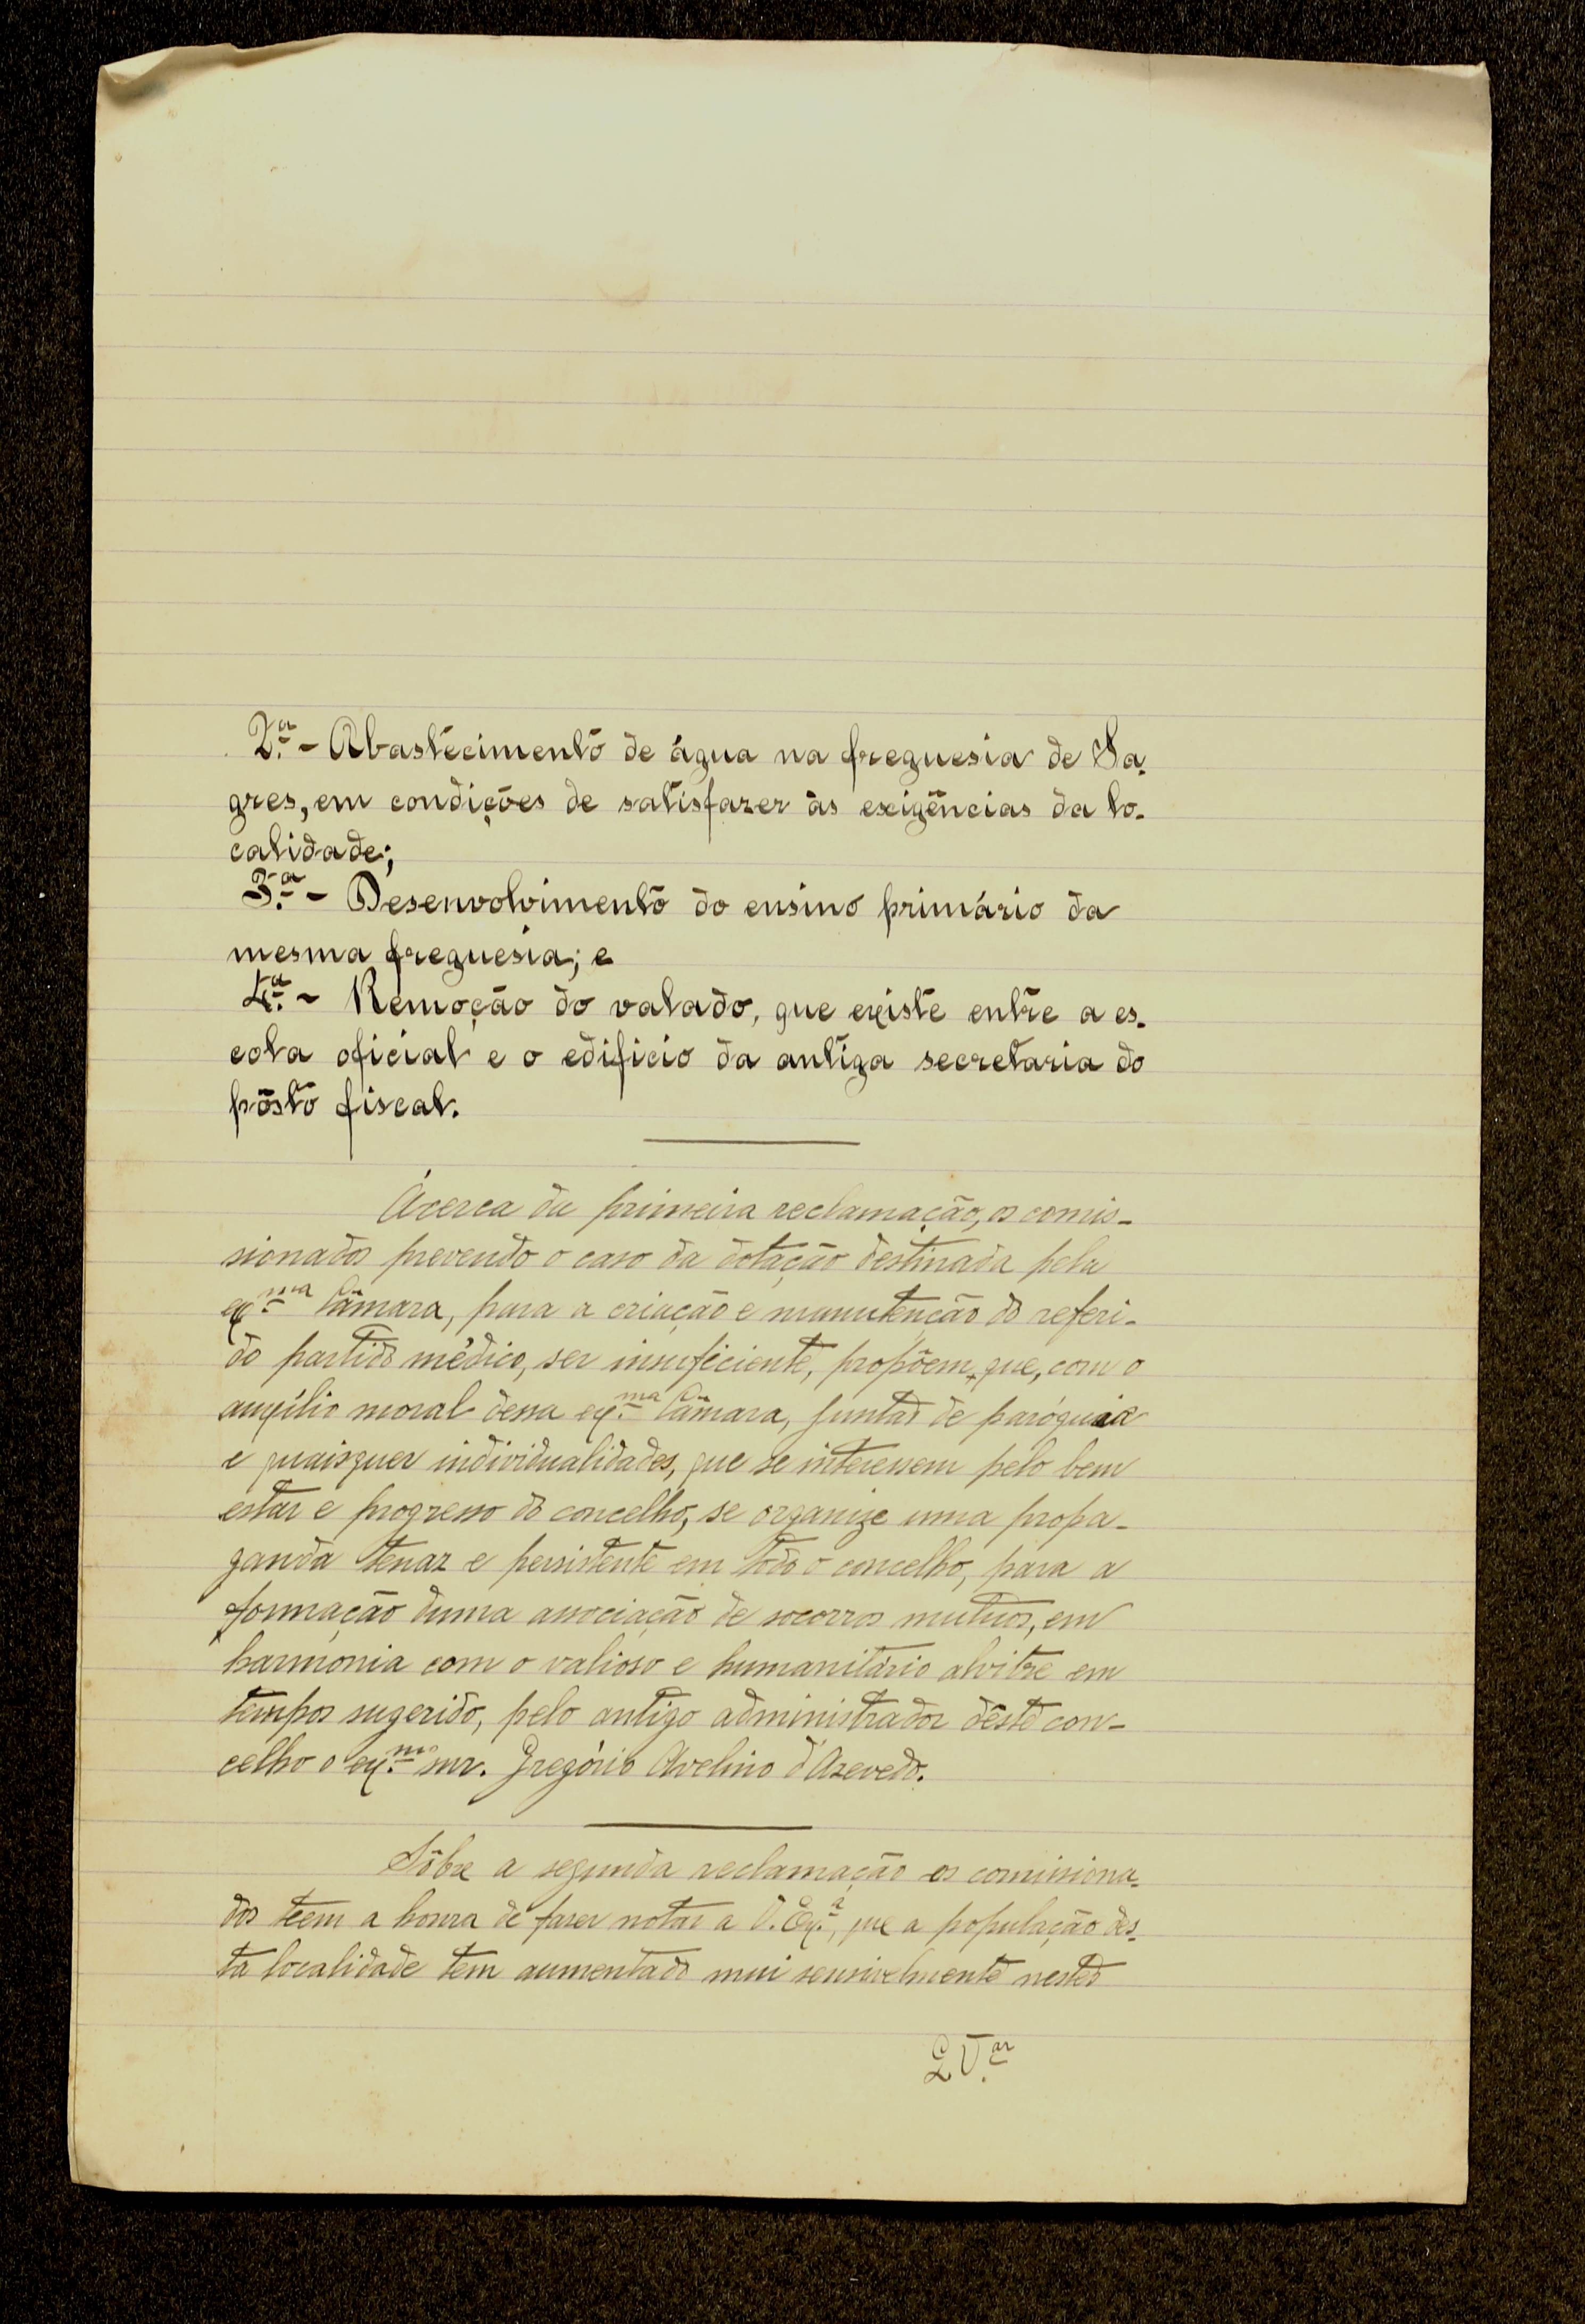 2.ª - Abastecimento de água na freguesia de Sa-
gres, em condições de satisfazer às exigências da lo-
calidade;
3.ª - Desenvolvimento do ensino primário da
mesma freguesia; e
4.ª - Remoção do valado, que existe entre a es-
cola oficial e o edifício da antiga secretaria do
pôsto fiscal.
Àcerca da primeira reclamação, os comis-
sionados prevendo o caso da dotação destinada pela
ex.ma Câmara, para a criação e manutenção do referi-
do partido médico, ser insuficiente, propõem, que, com o
auxílio moral dessa ex.ma Câmara, juntas de paróquia
e quaisquer individualidades, que se interessem pelo bem
estar e progresso do concelho, se organize uma propa-
ganda tenaz e persistente em todo o concelho, para a
formação duma associação de socorros mutuos, em
harmonia com o valioso e humanitário alvitre em
tempos sugerido, pelo antigo administrador dêste con-
celho o ex.mo snr. Gregório Avelino d'Azevedo.
Sôbre a segunda reclamação os comissiona-
dos teem a honra de fazer notar a V. Ex.ª, que a população des-
ta localidade tem aumentado mui sensivelmente nestes